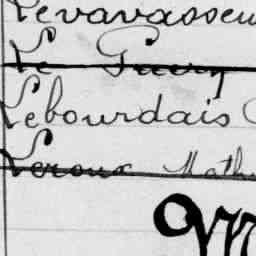 Levavasseu
Le
Lebourdais
Leroux Math
M